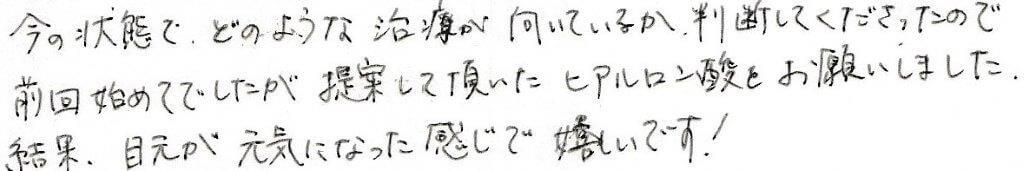 今の状態で、どのような治療が向いているか、判断してくださったので
前回始めてでしたが提案して頂いたヒアルロン酸をお願いしました。
結果、目元が元気になった感じで嬉しいです!